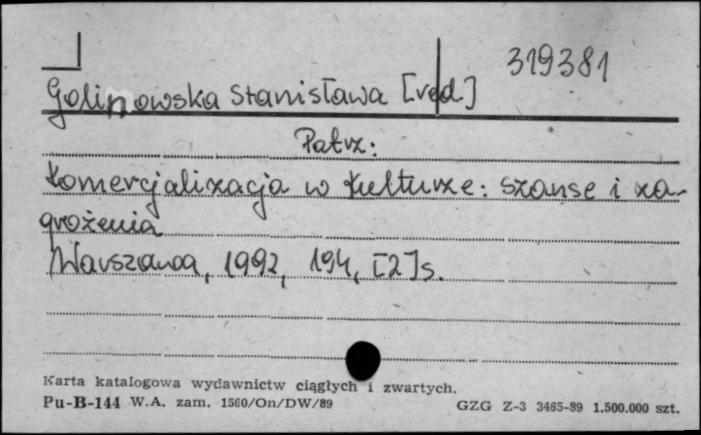 319381
Golinowska Stanisława [red.]
Patrz:
Komercjalizacja w kulturze: szanse i za-
grożenia
Warszawa, 1992, 194, [2] s.
Karta katalogowa wydawnictw ciągłych i zwartych.
Pu-B-144 W.A. zam. 1560/On/DW/89 GZG Z-3 3465-89 1.500.000 szt.